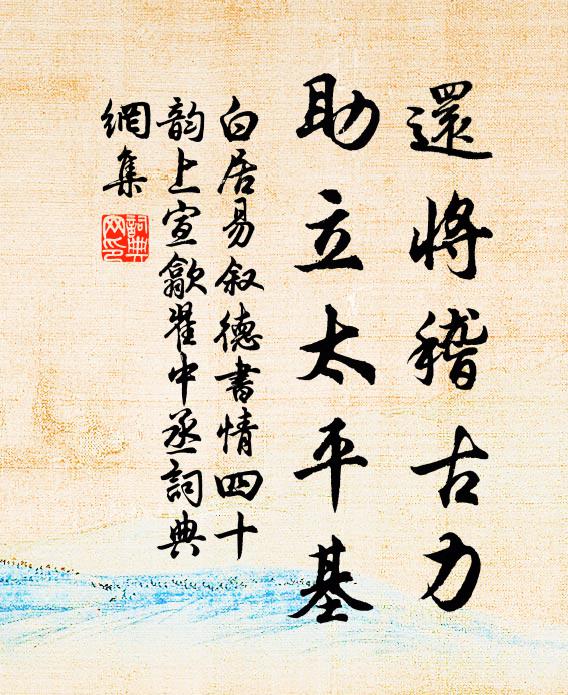 還將稽古力
助立太平基
白居易叙德書情四十
韵上宣歙翟中丞詞典
網集
詞典
网印